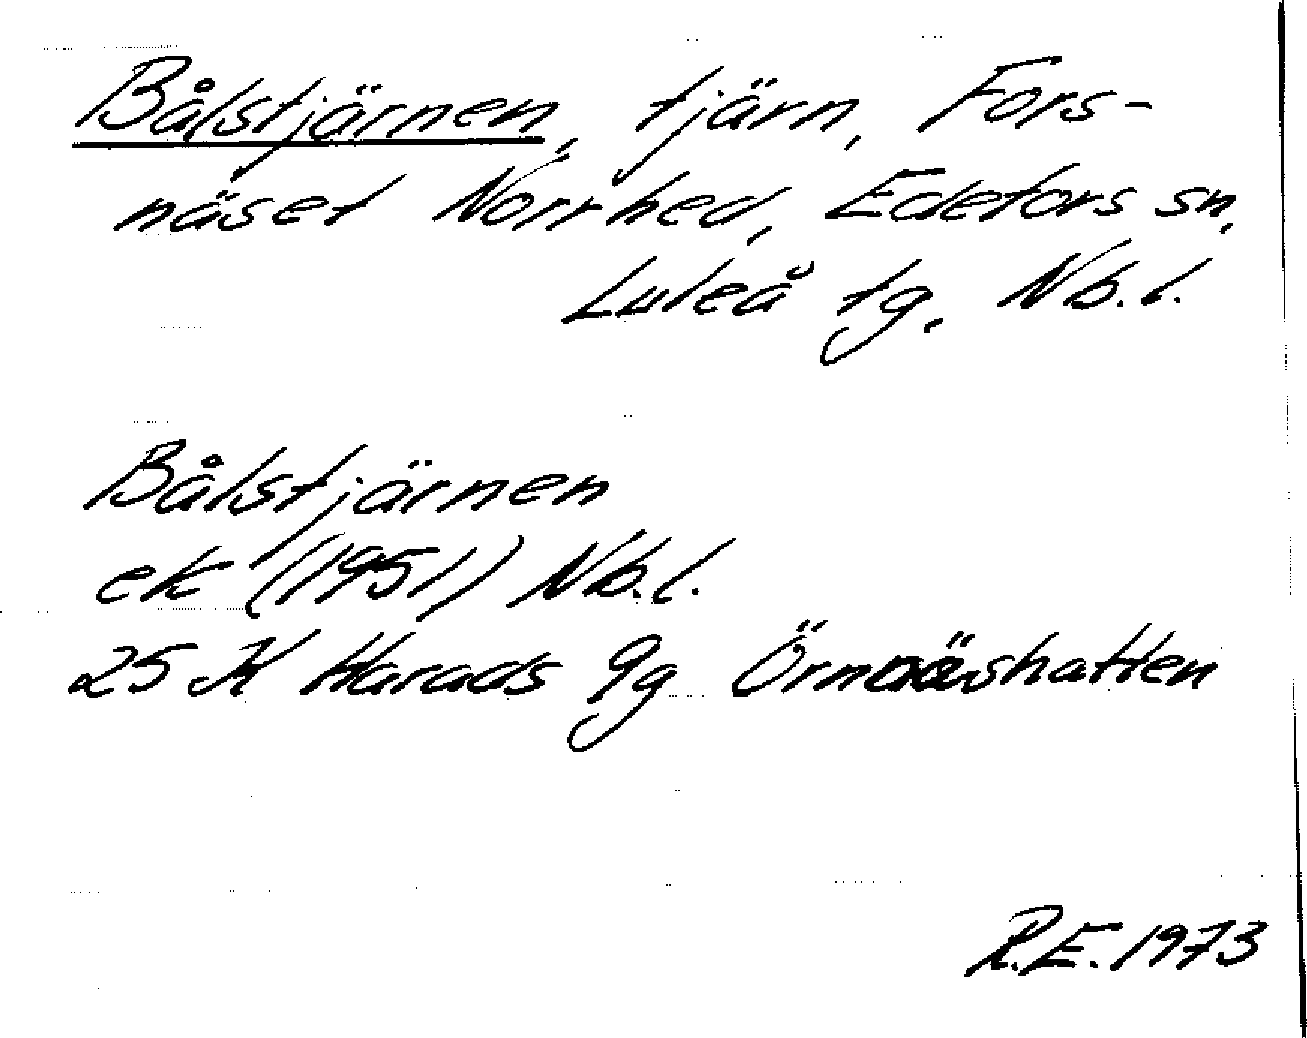 Bålstjärnen, tjärn, Fors-
näset Norrhed, Edefors sn,
Luleå tg, Nb.l.
Bålstjärnen
ek (1951) Nb.l.
25 K Harads 9g Örnnäshatten
R.E. 1973